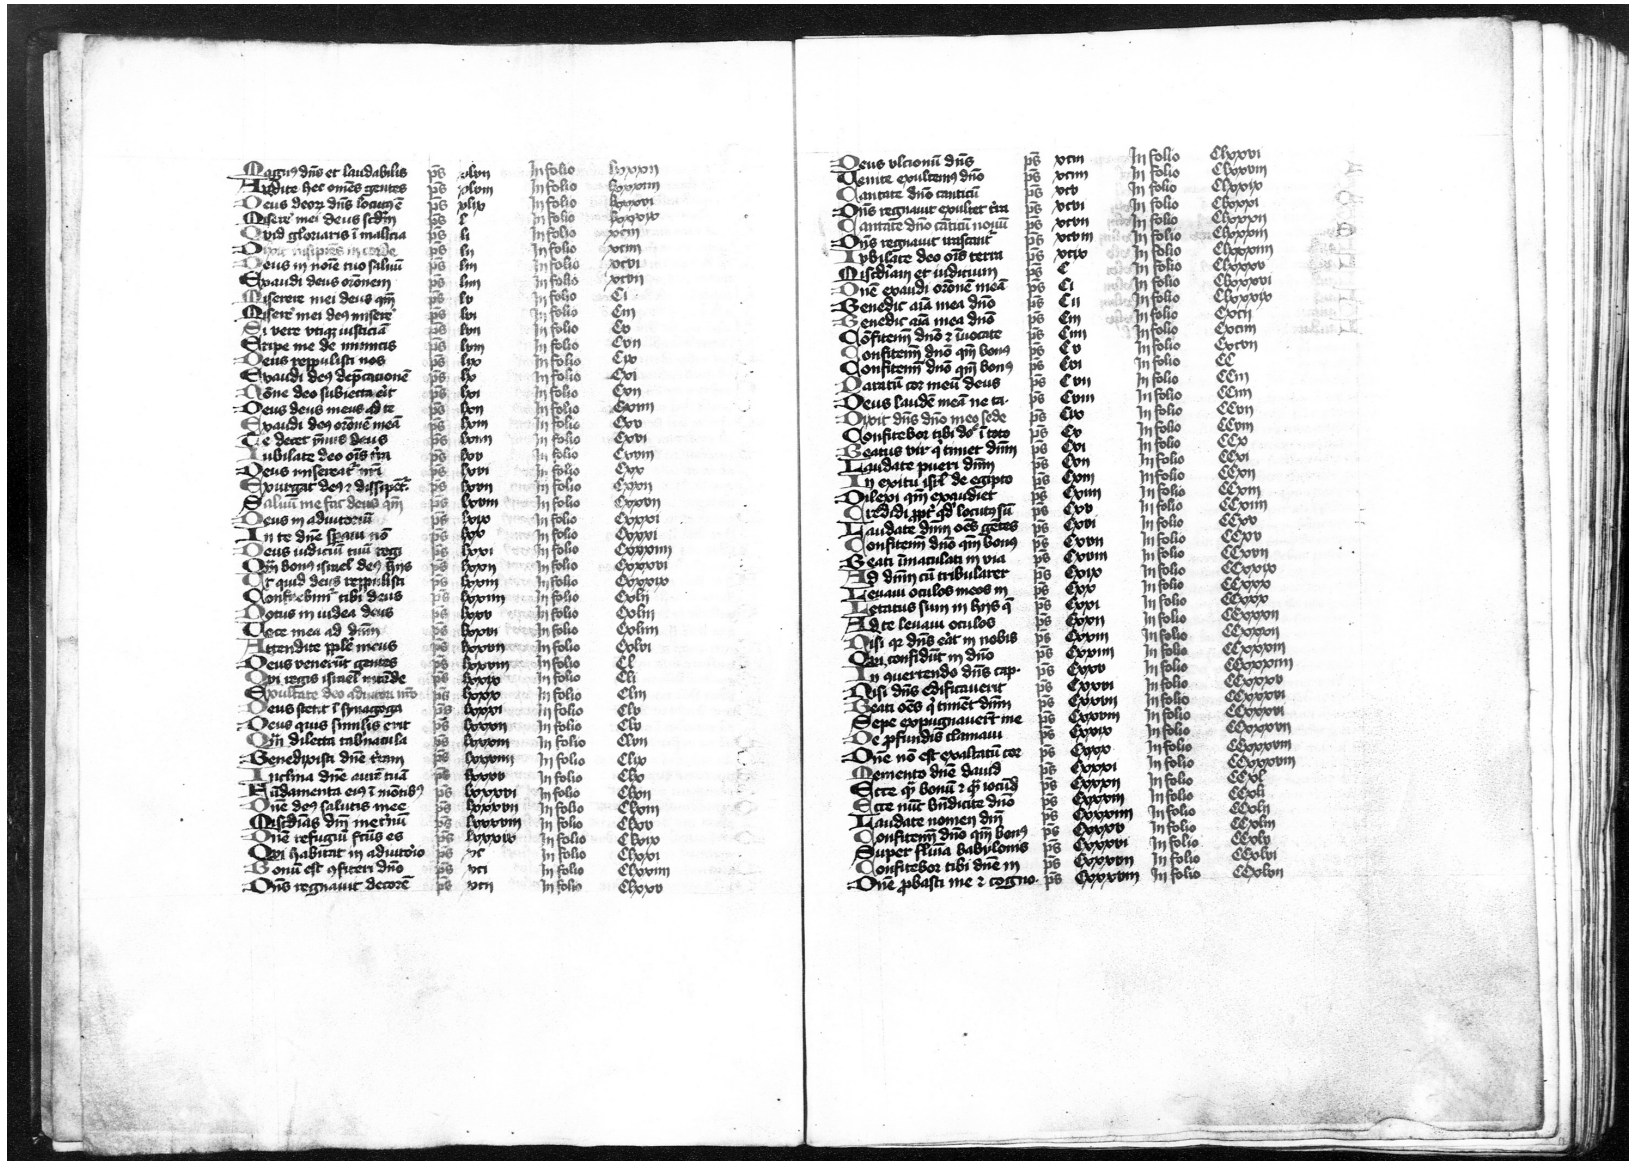 Magnꝰ dn̄s et laudabilis ps̄ xlvii In folio lxxxii
Audite hec om̄es gentes ps̄ xlviii In folio lxxxiiii
Deus deoꝝ dn̄s locutꝰ ē ps̄ xlix In folio lxxxvi
Misere mei deus scd̄m ps̄ l In folio lxxxix
Qvid gloriaris ī malicia ps̄ li In folio xciii
Dixit insipiēs in corde ps̄ lii In folio xciiii
Deus in noīe tuo saluū ps̄ liii In folio xcvi
Exaudi deus orōnem ps̄ liiii In folio xcvii
Miserere mei deus qm̄ ps̄ lv In folio Ci
Misere mei deꝰ misere ps̄ lvi In folio Ciii
Si vere vtiqꝫ iusticiā ps̄ lvii In folio Cv
Eripe me de inimicis ps̄ lviii In folio Cvii
Deus reppulisti nos ps̄ lix In folio Cix
Exaudi deꝰ dep̄cacionē ps̄ lx In folio Cxi
Nōne deo subiecta erit ps̄ lxi In folio Cxii
Deus deus meus ad te ps̄ lxii In folio Cxiiii
Exaudi deꝰ orōnē meā ps̄ lxiii In folio Cxv
Te decet ym̄nus deus ps̄ lxiiii In folio Cxvi
Iubilate deo oīs t̄ra ps̄ lxv In folio Cxviii
Deus misereat̄ nr̄i ps̄ lxvi In folio Cxx
Exurgat deꝰ ⁊ dissipent̄ ps̄ lxvii In folio
Saluū me fac deus qm̄ ps̄ lxviii In folio Cxxvii
Deus in adiutoriū ps̄ lxix In folio Cxxxi
In te dn̄e speraui nō ps̄ lxx In folio
Deus iudiciū tuū regi ps̄ lxxi In folio Cxxxiiii
Qm̄ bonꝰ israel deꝰ hijs ps̄ lxxii In folio Cxxxvi
Vt quid deus reppulisti ps̄ lxxiii In folio Cxxxix
Confitebim̄ tibi deus ps̄ lxxiiii In folio Cxlii
Notus in iudea deus ps̄ lxxv In folio Cxliii
Voce mea ad dn̄m ps̄ lxxvi In folio Cxliiii
Attendite pp̄le meus ps̄ lxxvii In folio Cxlvi
Deus venerūt gentes ps̄ lxxviii In folio Cl
Qvi regis israel intende ps̄ lxxix In folio Cli
Exultate deo adiutori nr̄o ps̄ lxxx In folio Cliii
Deus stetit ī synagoga ps̄ lxxxi In folio Clv
Deus quis similis erit ps̄ lxxxii In folio Clv
Qm̄ dilecta tabnacula ps̄ lxxxiii In folio Clvii
Benedixisti dn̄e t̄ram ps̄ lxxxiiii In folio Clix
Inclina dn̄e aurē tuā ps̄ lxxxv In folio Clx
Fūdamenta eiꝰ ī mōtibꝰ ps̄ lxxxvi In folio Clxii
Dn̄e deꝰ salutis mee ps̄ lxxxvii In folio Clxiii
Mis̄cdias dn̄i in et̄nū ps̄ lxxxviii In folio Clxv
Dn̄e refugiū fc̄us es ps̄ lxxxix In folio Clxix
Qvi habitat in adiutorio ps̄ xc In folio Clxxi
Bonū est 9fiteri dn̄o ps̄ xci In folio Clxxiii
Dn̄s regnauit decorē ps̄ xcii In folio Clxxv
Deus vlcionū dn̄s ps̄ xciii In folio Clxxvi
Venite exultemꝰ dn̄o ps̄ xciiii In folio Clxxviii
Cantate dn̄o canticū ps̄ xcv In folio Clxxix
Dn̄s regnauit exultet t̄ra ps̄ xcvi In folio Clxxxi
Cantate dn̄o cāticū nouū ps̄ xcvii In folio Clxxxii
Dn̄s regnauit irascant̄ ps̄ xcviii In folio Clxxxiii
Ivbilate deo oīs terra ps̄ xcix In folio Clxxxiiii
Mis̄cdiam et iudicium ps̄ C In folio Clxxxv
Dn̄e exaudi orōnē meā ps̄ Ci In folio Clxxxvi
Benedic aīa mea dn̄o ps̄ Cii In folio Clxxxix
Benedic aīa mea dn̄o ps̄ Ciii In folio Cxcii
Cōfitemī dn̄o ⁊ īuocate ps̄ Ciiii In folio Cxciiii
Confitemī dn̄o qm̄ bonꝰ ps̄ Cv In folio Cxcvii
Confitemī dn̄o qm̄ bonꝰ ps̄ Cvi In folio CC
Paratū cor meū deus ps̄ Cvii In folio CCiii
Deus laudē meā ne ta· ps̄ Cviii In folio CCiiii
Dixit dn̄s dn̄o meo sede ps̄ Cix In folio CCvii
Confitebor tibi do͛ ī toto ps̄ Cx In folio CCviii
Beatus vir q̄ timet dn̄m ps̄ Cxi In folio CCx
Laudate pueri dn̄m ps̄ Cxii In folio CCxi
In exitu isrl̄ de egipto ps̄ Cxiii In folio CCxii
Dilexi qm̄ exaudiet ps̄ Cxiiii In folio CCxiii
Credidi ꝓpt̄ qd̄ locutꝰ sū ps̄ Cxv In folio CCxiiii
Laudate dn̄m oēs gētes ps̄ Cxvi In folio CCxv
Confitemī dn̄o qm̄ bonꝰ ps̄ Cxvii In folio CCxv
Beati īmaculati in via ps̄ Cxviii In folio CCxvii
Ad dn̄m cū tribularer ps̄ Cxix In folio CCxxix
Leuaui oculos meos in ps̄ Cxx In folio CCxxx
Letatus sum in hijs q̄ ps̄ Cxxi In folio CCxxx
Ad te leuaui oculos ps̄ Cxxii In folio CCxxxii
Nisi qꝛ dn̄s erat in nobis ps̄ Cxxiii In folio CCxxxii
Qvi confidūt in dn̄o ps̄ Cxxiiii In folio CCxxxiii
In querrendo dn̄s cap· ps̄ Cxxv In folio CCxxxiiii
Nisi dn̄s edificauerit ps̄ Cxxvi In folio CCxxxv
Beati oēs q̄ timēt dn̄m ps̄ Cxxvii In folio CCxxxvi
Sepe expugnauer̄t me ps̄ Cxxviii In folio CCxxxvi
De ꝓfundis clamaui ps̄ Cxxix In folio CCxxxvii
Dn̄e nō est exaltatū cor ps̄ Cxxx In folio CCxxxviii
Memento dn̄e dauid ps̄ Cxxxi In folio CCxxxviii
Ecce q̄ bonū ⁊ q̄ iocūd ps̄ Cxxxii In folio CCxl
Ecce nūc bn̄dicite dn̄o ps̄ Cxxxiii In folio CCxli
Laudate nomen dn̄i ps̄ Cxxxiiii In folio CCxlii
Confitemī dn̄o qm̄ bonꝰ ps̄ Cxxxv In folio CCxliii
Super flūia babylonis ps̄ Cxxxvi In folio CCxlv
Confitebor tibi dn̄e in ps̄ Cxxxvii In folio CCxlvi
Dn̄e ꝓbasti me ⁊ cogno· ps̄ Cxxxviii In folio CCxlvii